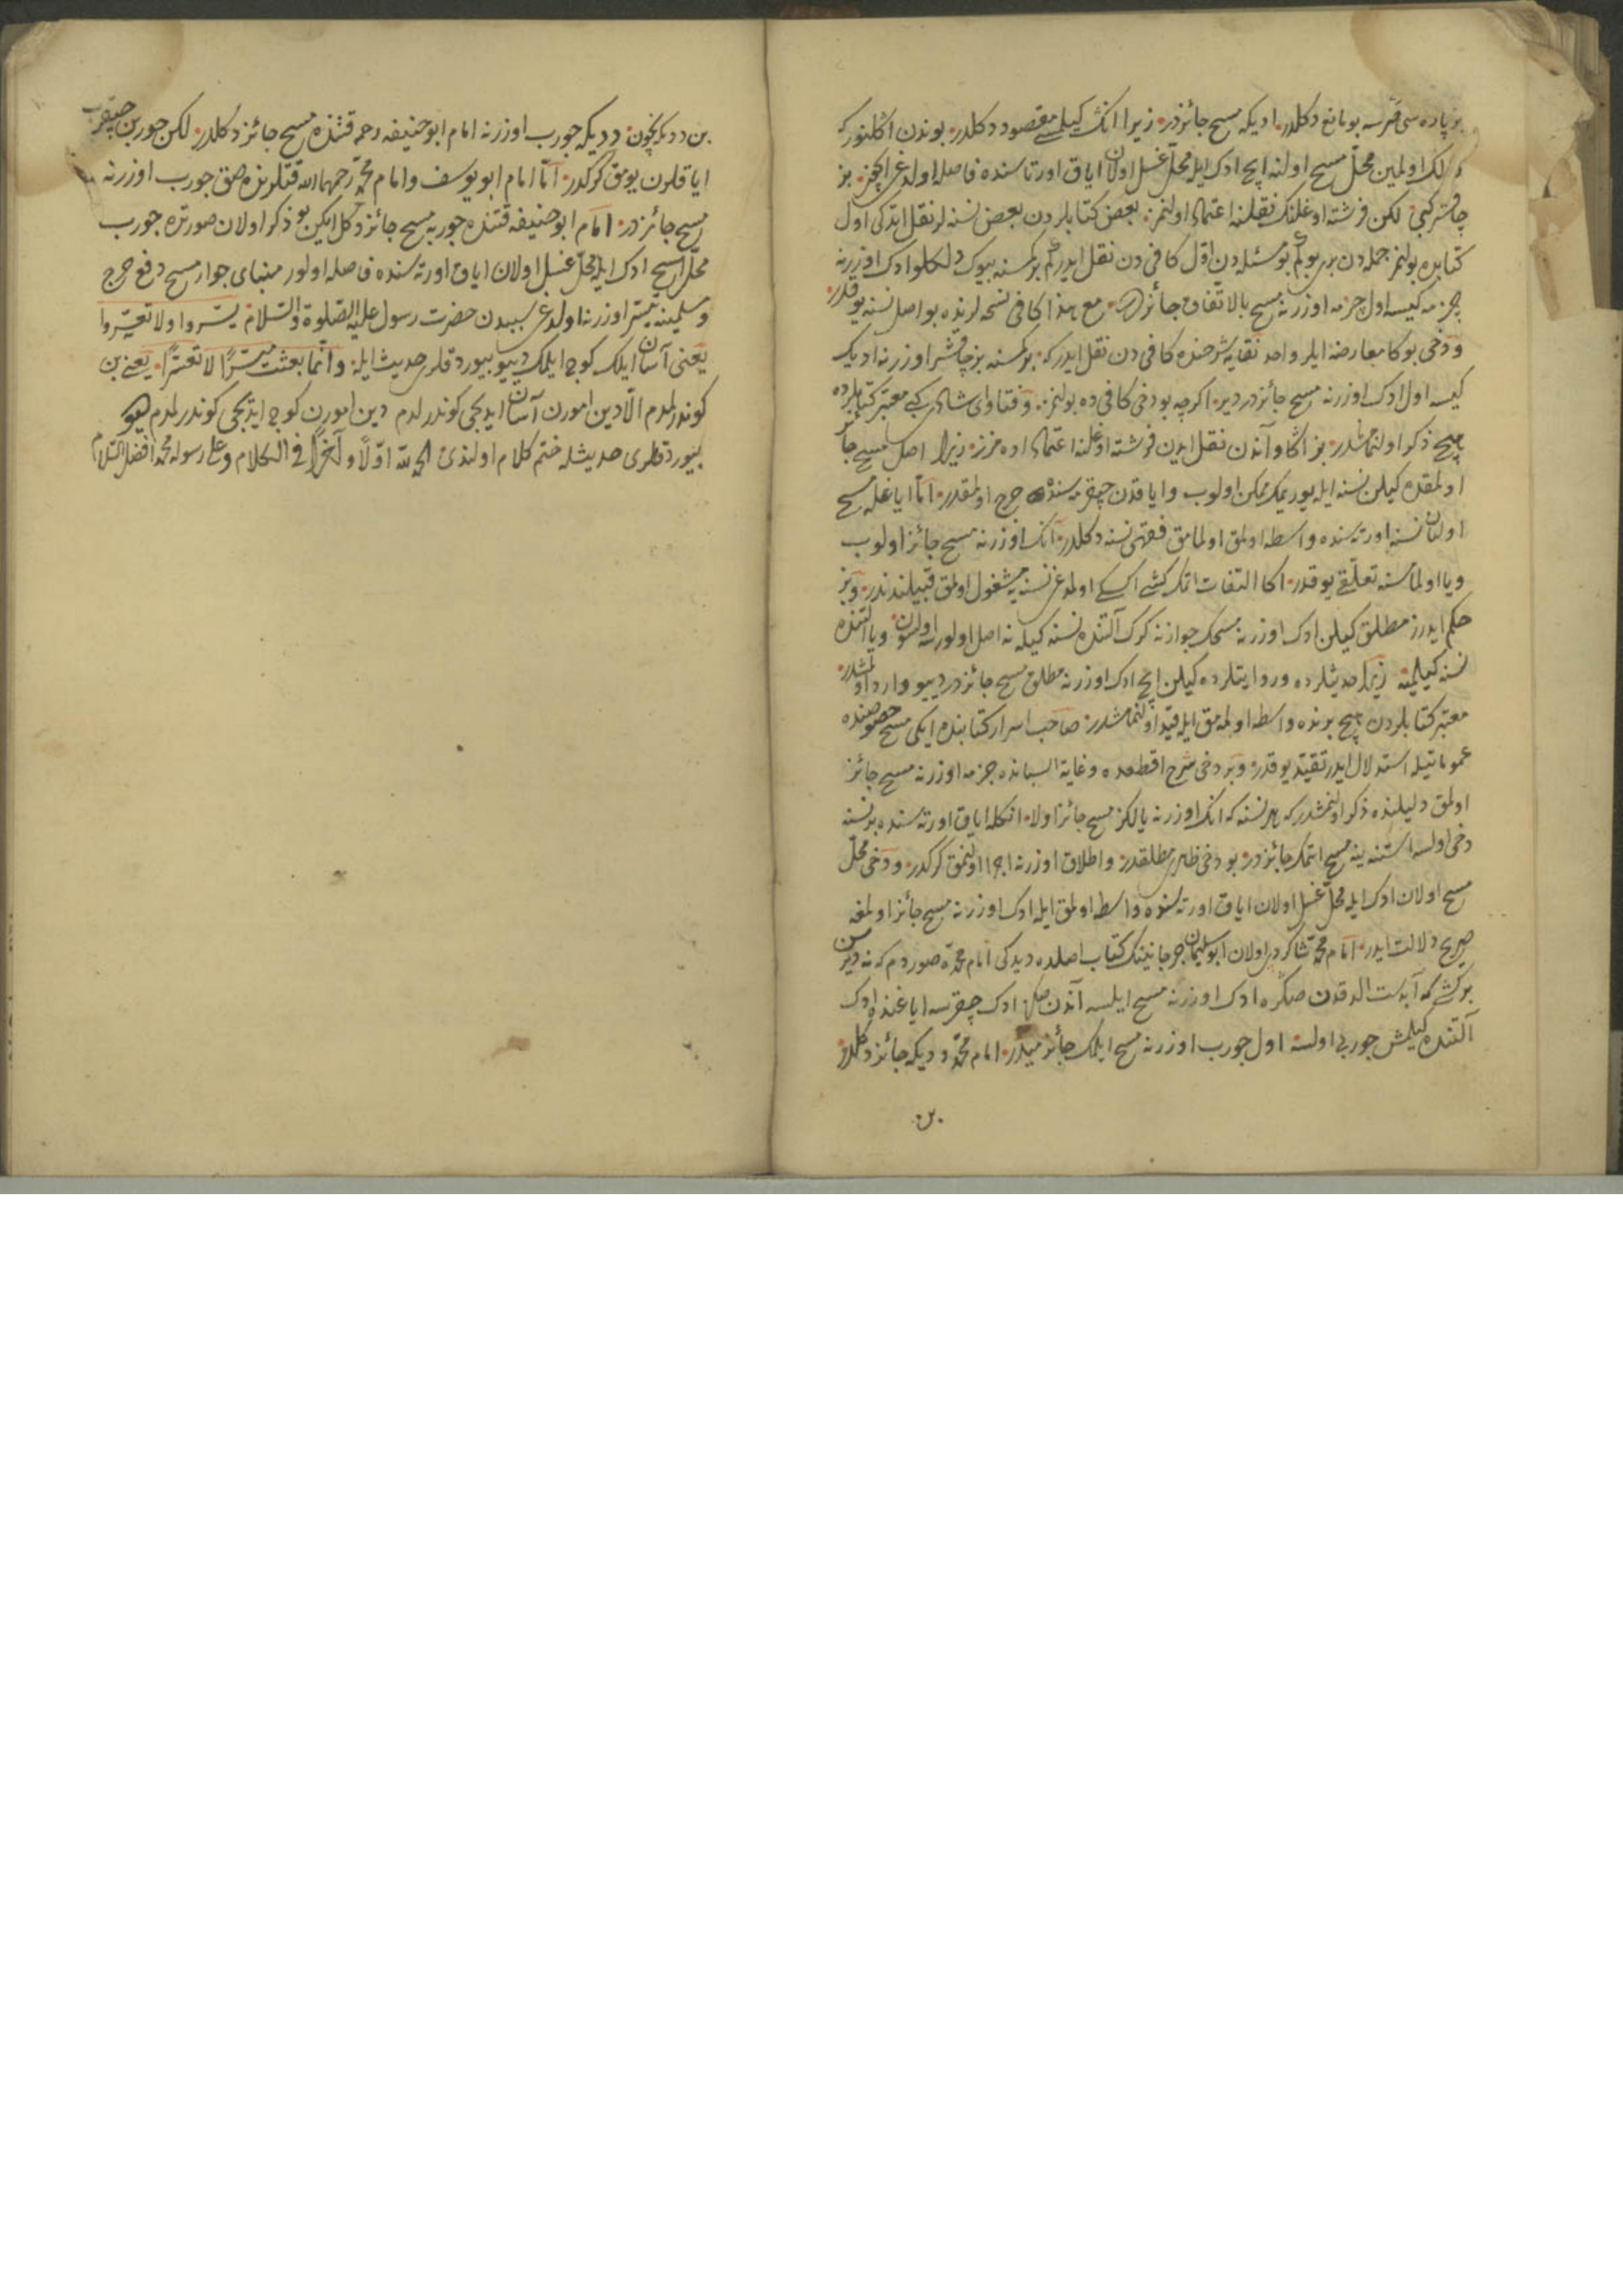 بز پاره سی قرسه بو مانع دكلدر اديكه مسح جائزدر زيرا انك كيلمسی مقصود دكلدر بوندن اكلنور كه
اولمين محلّ مسح اولنه ايچ ادك ايله محلّ غسل اولان اياق اورتاسنده فاصله اولدغی ايچون بز
چاقشر كبی لكن فرشته اوغلنك نقلنه اعتماد اولنمز بعض كتابلردن بعض نسنه لر نقل ايتدكی اول
كتابده بولنمز جمله دن بری بو كم بو مسئله دن اوّل كافی دن نقل ايدر كم بر كمسنه بيوك دلكلو ادك اوزرنه
چزمه كيسه اول چزمه اوزرنه مسح بالاتّفاق جائز در مع هذا كافی نسخه لرنده بو اصل نسنه يوقدر
ودخی بوكا معارضه ايلر واحد نقايه شرحنده كافی دن نقل ايدر كه بر كمسنه بز چاقشر اوزرنه اديك
كيسه اول ادك اوزرنه مسح جائزدر دير اكرچه بو دخی كافی ده بولنمز وفتاوای شاذی كبی معتبر كتابلرده
هيچ ذكر اولنمامشدر بز اكا و آندن نقل ايدن فرشته اوغلنه اعتماد ايده مزز زيرا اصل مسح جائز
اولمقده كيلن نسنه ايله يوريمك ممكن اولوب واياقدن چيقرمه سنده حرج اولمقدر امّا اياغله مسح
اولنان نسنه اورته سنده واسطه اولمق اولمامق فقهی نسنه دكلدر آنك اوزرنه مسح جائز اولوب
ويا اولماسنه تعلّقی يوقدر اكا التفات اتمك كشی اكسك اولمدغی نسنيه مشغول اولمق قبيلندندر وبز
حكم ايدرز مطلق كيلن ادك اوزرنه مسحك جوازنه كرك آلتنده نسنه كيله نه اصل اولورسه اولسون ويا آلتنده
نسنه كيلميه زيرا حديثلرده وروايتلرده كيلن ايچ ادك اوزرنه مطلق مسح جائزدر ديو وارد اولمشدر
معتبر كتابلردن هيچ برنده واسطه اولمه مق ايله قيد اولنمامشدر صاحب اسرار كتابنده ايكی مسح خصوصنده
عموماتيله استدلال ايدر تقييد يوقدر وبر دخی شرح اقطعده وغاية البيانده چزمه اوزرنه مسح جائز
اولمق دليلنده ذكر اولنمشدر كه هر نسنه كه انك اوزرنه يالكز مسح جائز اولا انكله اياق اورته سنده بر نسنه
دخی اولسه استنه ينه مسح اتمك جائزدر بو دخی ظاهری مطلقدر واطلاق اوزرنه اجرا اولنمق كركدر ودخی محلّ
مسح اولان ادك ايله محلّ غسل اولان اياق اورته سنده واسطه اولمق ايله ادك اوزرنه مسح جائز اولمغه
صريح دلالت ايدر امام محمّد شاكردی اولان ابو سليمان جرجانينك كتاب اصلده ديدكی امام محمّده صوردم كه نه ديرسن
بر كشی كه آبدست الدقدن صكره ادك اوزرنه مسح ايلسه آندن صكره ادك چيقرسه اياغنده ادك
آلتنده كيلمش جوربی اولسه اول جورب اوزرنه مسح ايلمك جائز ميدر امام محمّد ديديكه جائز دكلدر
بن
بن ديديكه نيچون ديديكه جورب اوزرنه امام ابو حنيفه رحمه قتنده مسح جائز دكلدر لكن جوربن چيقرب
اياقلرن يومق كركدر امّا امام ابو يوسف وامام محمّد رحمهما الله قتلرنده صق جورب اوزرنه
مسح جائزدر امام ابو حنيفه قتنده جوربه مسح جائز دكل ايكن بو ذكر اولان صورتده جورب
محلّ مسح ادك ايله محلّ غسل اولان اياق اورته سنده فاصله اولور مبنای جواز مسح دفع حرج
ومسلمينه يسر اوزرنه اولدغی سببدن حضرت رسول عليه الصّلوة والسّلام يسّروا ولا تعسّروا
يعنی آسان ايلك كوج ايلمك ديو بيوردقلری حديث ايله وانّما بعثت ميسّرًا لا معسّرًا يعنی بن
كوندرلمدم الّا دين امورن آسان ايديجی كوندرلدم دين امورن كوج ايديجی كوندرلمدم ديو
بيوردقلری حديثله ختم كلام اولندی الحمد لله اوّلًا وآخرًا فی الكلام وعلی رسوله محمّد افضل السّلام